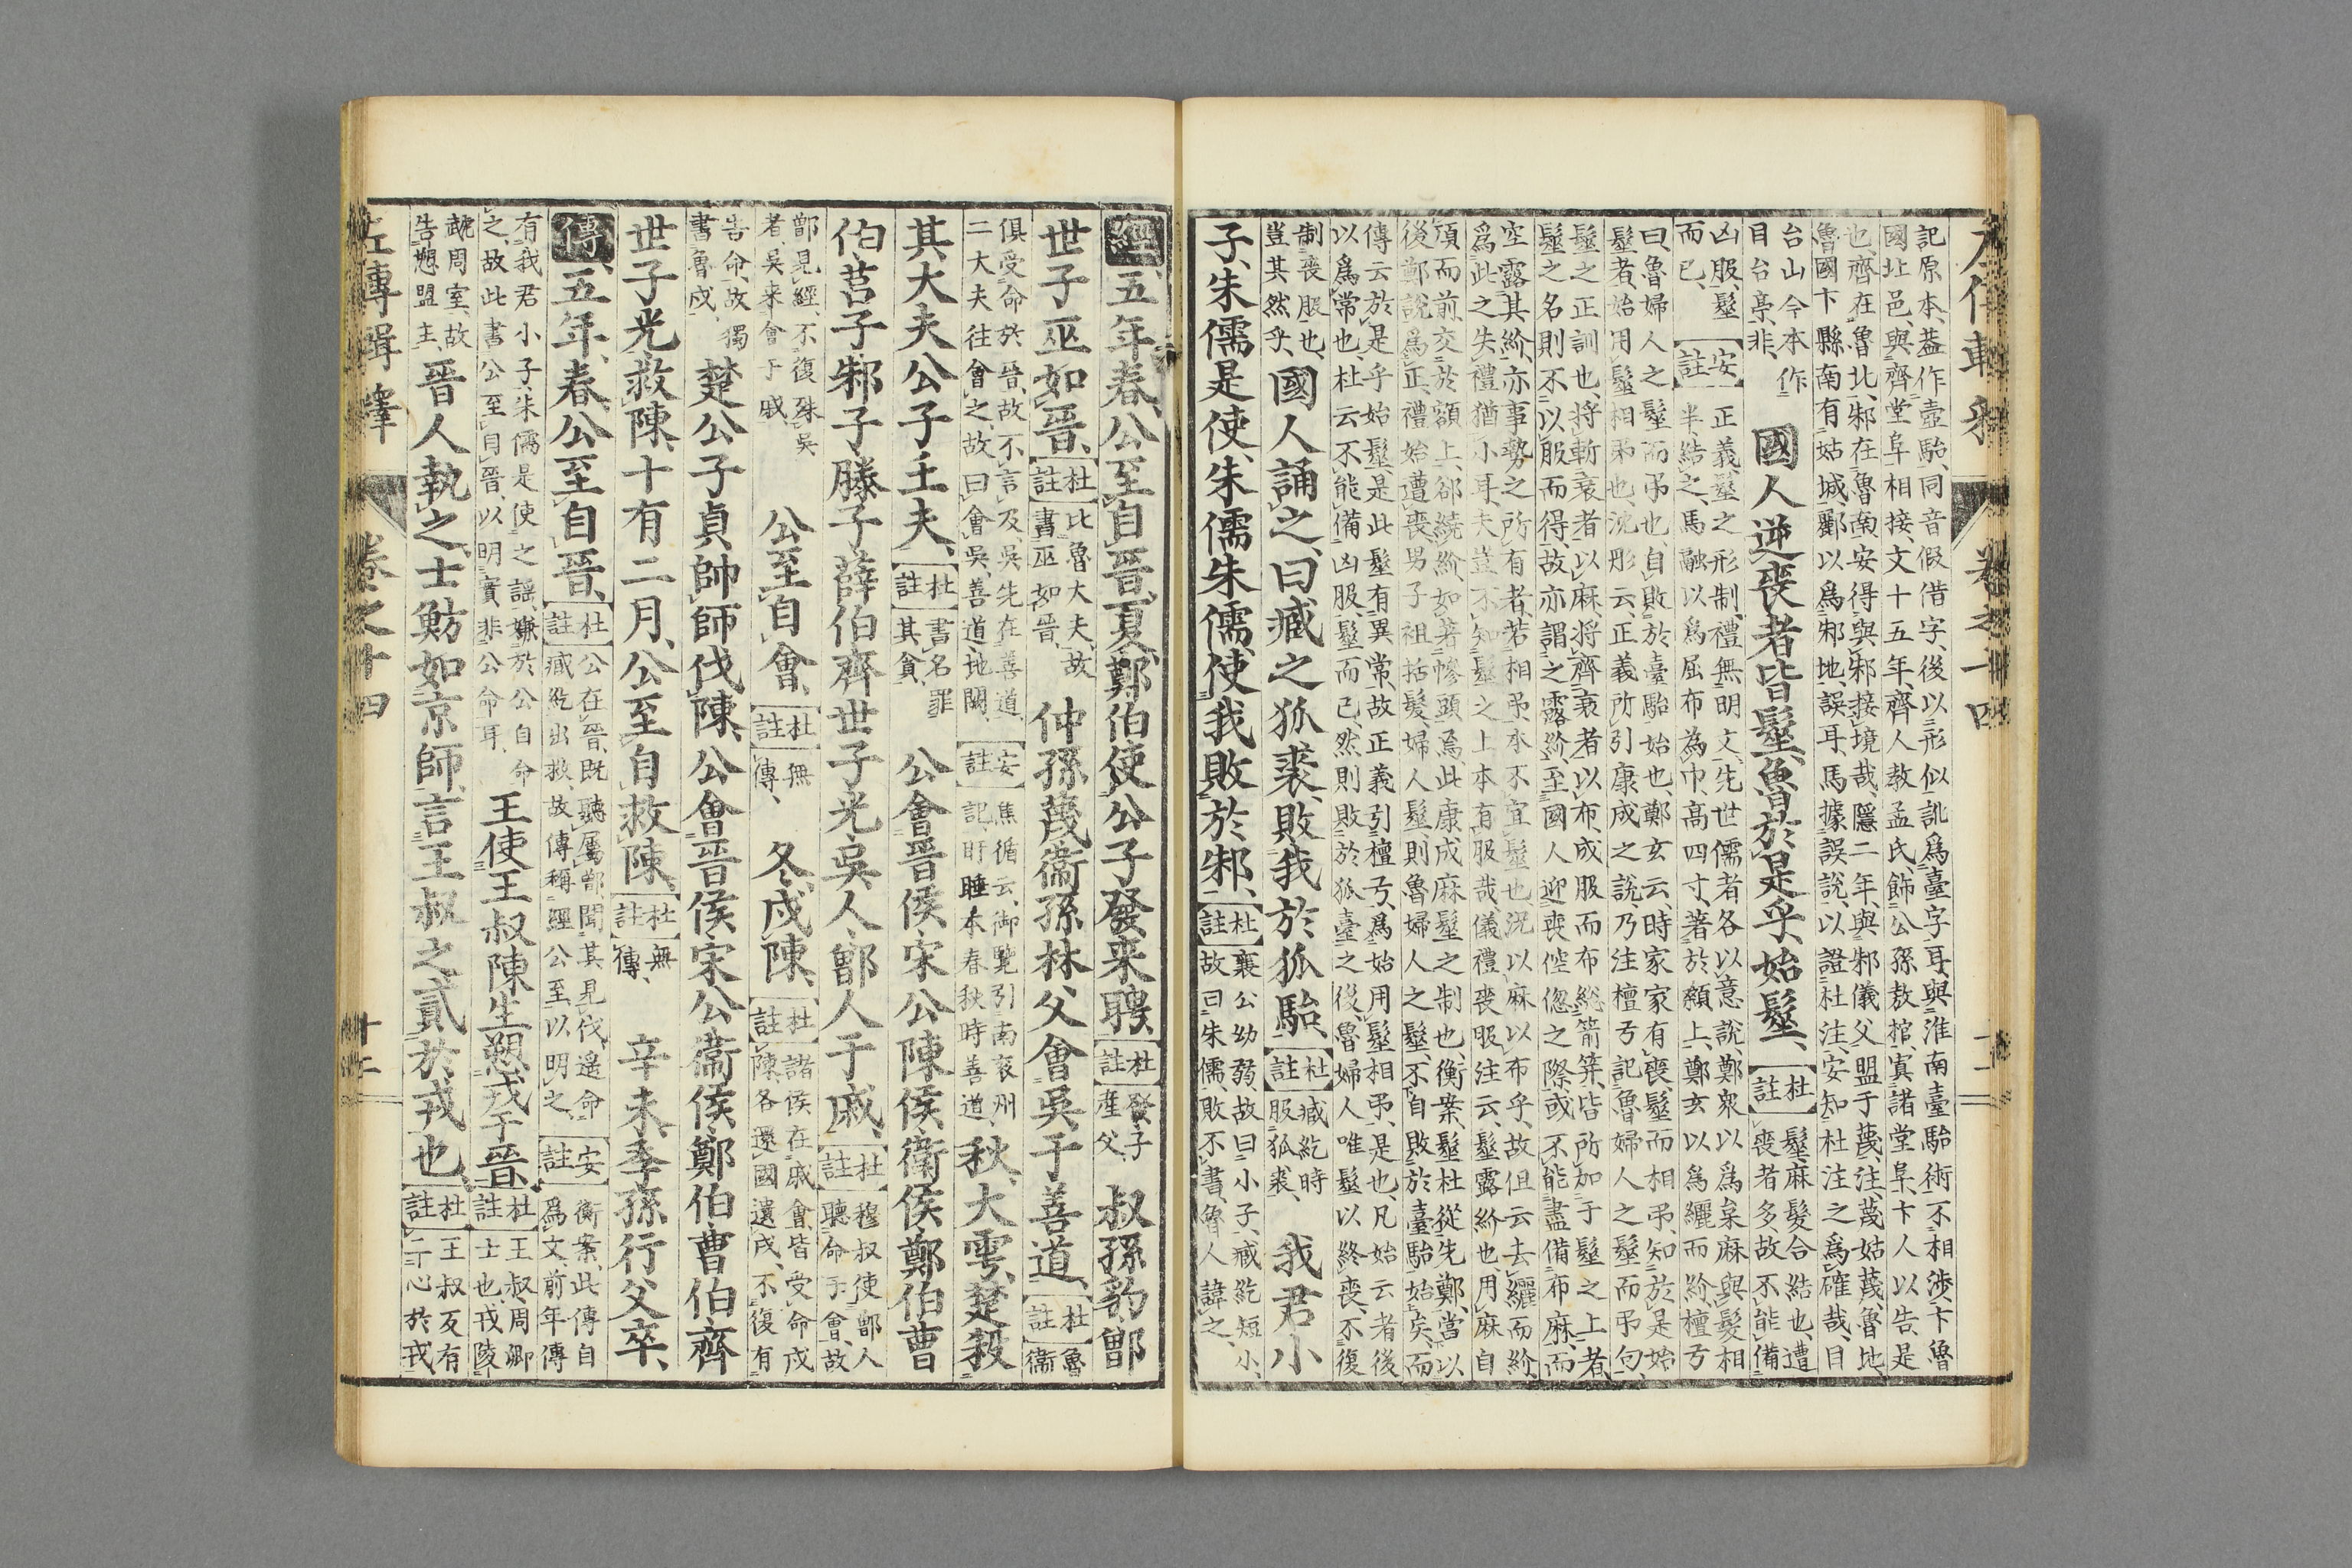 記原本、葢作壺駘、同音假借字、後以形似訛爲臺字耳、與淮南臺駘術不相涉、卞魯
國北邑、與齊堂阜相接、文十五年、齊人敖孟氏、飾公孫敖棺、寘諸堂阜、卞人以告、是
也、齊在魯北、邾在魯南、安得與邾接境哉、隱二年、與邾儀父盟于蔑、注、蔑姑蔑、魯地
魯國卞縣南有姑城、酈以爲邾地、誤耳、馬據誤說、以證杜注、安知杜注之爲確哉、目
台山今本作
目台亭、非、
國人逆喪者皆髽、魯於是乎始髽、
杜註
髽、麻髮合結也、遭
喪者多故不能備
凶服、髽
而已、
安註
正義、髽之形制、禮無明文、先世儒者各以意說、鄭衆以爲枲麻與髮相
半結之、馬融以爲屈布為巾、高四寸、著於顙上、鄭玄以爲纚而紒、檀弓
曰、魯婦人之髽而弔也、自敗於臺駘始也、鄭玄云、時家家有喪、髽而相弔、知於是始
髽者、始用髽相弔也、沈彤云、正義所引康成之說、乃注檀弓記魯婦人之髽而弔句、
髽之正訓也、將斬衰者以麻、將齊衰者以布、成服而布總箭笄、皆所加于髽之上者
髽之名則不以服而得、故亦謂之露紒、至國人迎喪倥偬之際、或不能盡備布麻、而
空露其紒、亦事勢之所有者、若相弔、本不宜髽也、況以麻以布乎、故但云去纚而紒、
爲此之失禮猶小耳、夫豈不知髽之上本有服哉、儀禮喪服注云、髽露紒也、用麻自
項而前、交於額上、郤繞紒、如著幓頭焉、此康成麻髽之制也、衡案、髽杜從先鄭、當以
後鄭說爲正、禮始遭喪男子袒括髮、婦人髽、則魯婦人之髽、不自敗於臺駘始矣、而
傳云於是乎始髽、是此髽有異常、故正義引檀弓、爲始用髽相弔、是也、凡始云者後
以爲常也、杜云不能備凶服、髽而已、然則敗於狐臺之後、魯婦人唯髽以終喪、不復
制喪服也、
豈其然乎、
國人誦之、曰臧之狐裘、敗我於狐駘、
杜註
臧紇時
服狐裘、
我君小
子、朱儒是使、朱儒朱儒、使我敗於邾、
杜註
襄公幼弱、故曰小子、臧紇短小、
故曰朱儒、敗不書、魯人諱之、
卷之十四
十一
經、五年春、公至自晉、夏、鄭伯使公子發來聘、
杜註
發、子
產父、
叔孫豹鄫
世子巫如晉、
杜註
比魯大夫、故
書巫如晉、
仲孫蔑衞孫林父會吳于善道、
杜註
魯衞
俱受命於晉、故不言及、吳先在善道、
二大夫往會之、故曰會吳、善道、地闕、
安註
焦循云、御覽引南兗州
記、盱睡本春秋時善道、
秋、大雩、楚殺
其大夫公子壬夫、
杜註
書名罪
其貪、
公會晉侯、宋公陳侯、衛侯鄭伯曹
伯莒子邾子滕子薛伯齊世子光吳人、鄫人于戚、
杜註
穆叔使鄫人
聽命于會、故
鄫見經、不復殊吳
者、吳來會于戚
公至自會、
杜註
無
傳、
冬戍陳、
杜註
諸侯在戚會、皆受命戍
陳、各還國遣戍、不復有
告命、故獨
書魯戍、
楚公子貞帥師伐陳、公會晉侯、宋公衞侯、鄭伯曹伯齊
世子光救陳、十有二月、公至自救陳、
杜註
無
傳、
辛未、季孫行父卒、
傳、五年、春、公至自晉、
杜註
公在晉、既聽屬鄫、聞其見伐、遙命
臧紇出救、故傳稱經公至以明之、
安註
衡案、此傳自
爲文、前年傳
有我君小子、朱儒是使之謡、嫌於公自命
之、故此書公至自晉、以明實非公命耳、
王使王叔陳生愬戎于晉、
杜註
王叔、周卿
士也、戎陵
虣周室、故
告愬盟主、
晉人執之、士魴如京師、言王叔之貳於戎也、
杜註
王叔反有
二心於戎、
左傳輯釋
卷之十四
十二